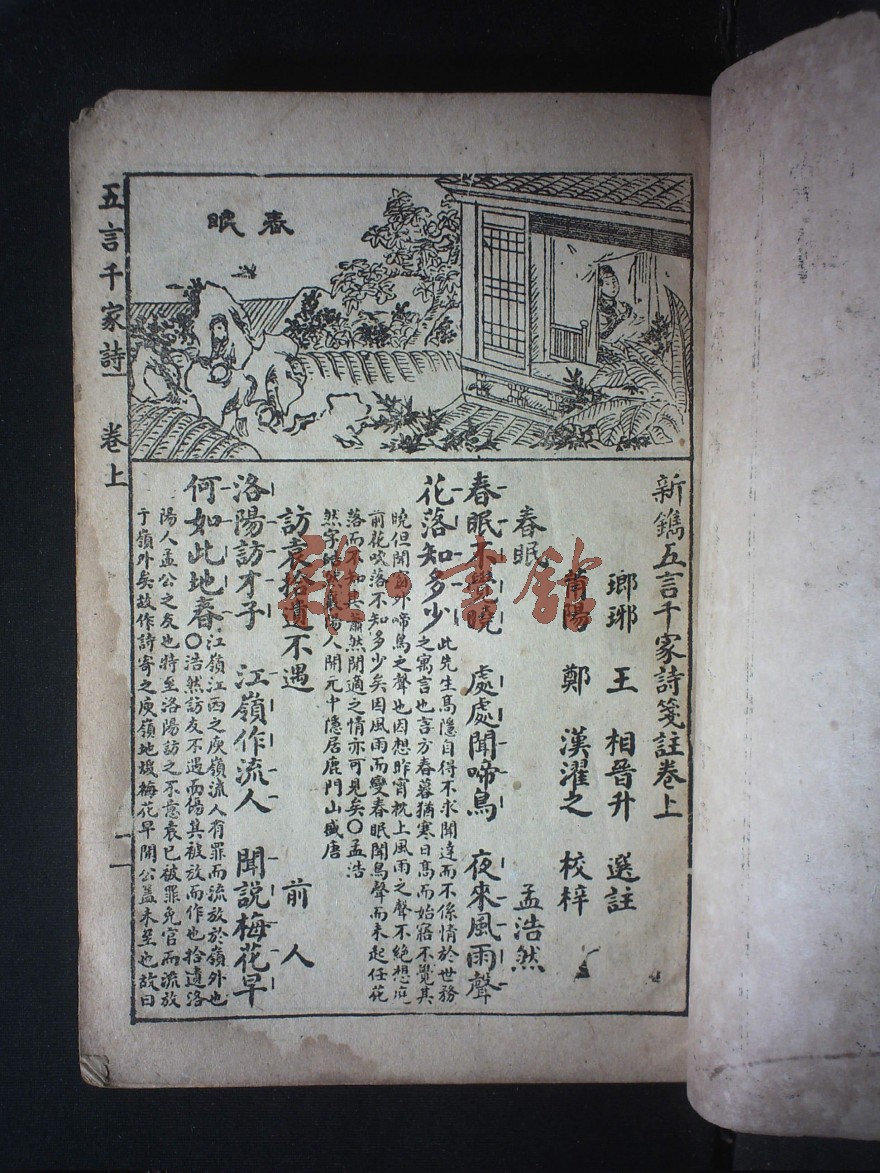 五言千家詩 卷上
春眠
新鐫五言千家詩箋註卷上
瑯琊 王 相晉升 選註
莆陽 鄭 漢濯之 校梓
春眠 孟浩然
春眠不覺曉 處處聞啼鳥 夜來風雨聲
花落知多少
此先生高隱自得不求聞達而不係情於世務
之寓言也言方春暮猶寒日高而始寤不覺其
曉但聞窗外啼鳥之聲也因想昨宵枕上風雨之聲不絕想
前花吹落不知多少矣因風雨而變春眠聞鳥聲而未起任花
落而不知其蕭然閒適之情亦可見矣〇孟浩
然字 陽人開元中隱居鹿門山盛唐
訪袁拾遺不遇 前人
洛陽訪才子 江嶺作流人 聞說梅花早
何如此地春
江嶺江西之庾嶺流人有罪而流放於嶺外也
〇浩然訪友不遇而傷其被放而作也拾遺洛
陽人孟公之友也特至洛陽訪之不意袁已被罪免官而流放
于嶺外矣故作詩寄之庾嶺地煖梅花早開公蓋未至也故曰
一
雜·書館